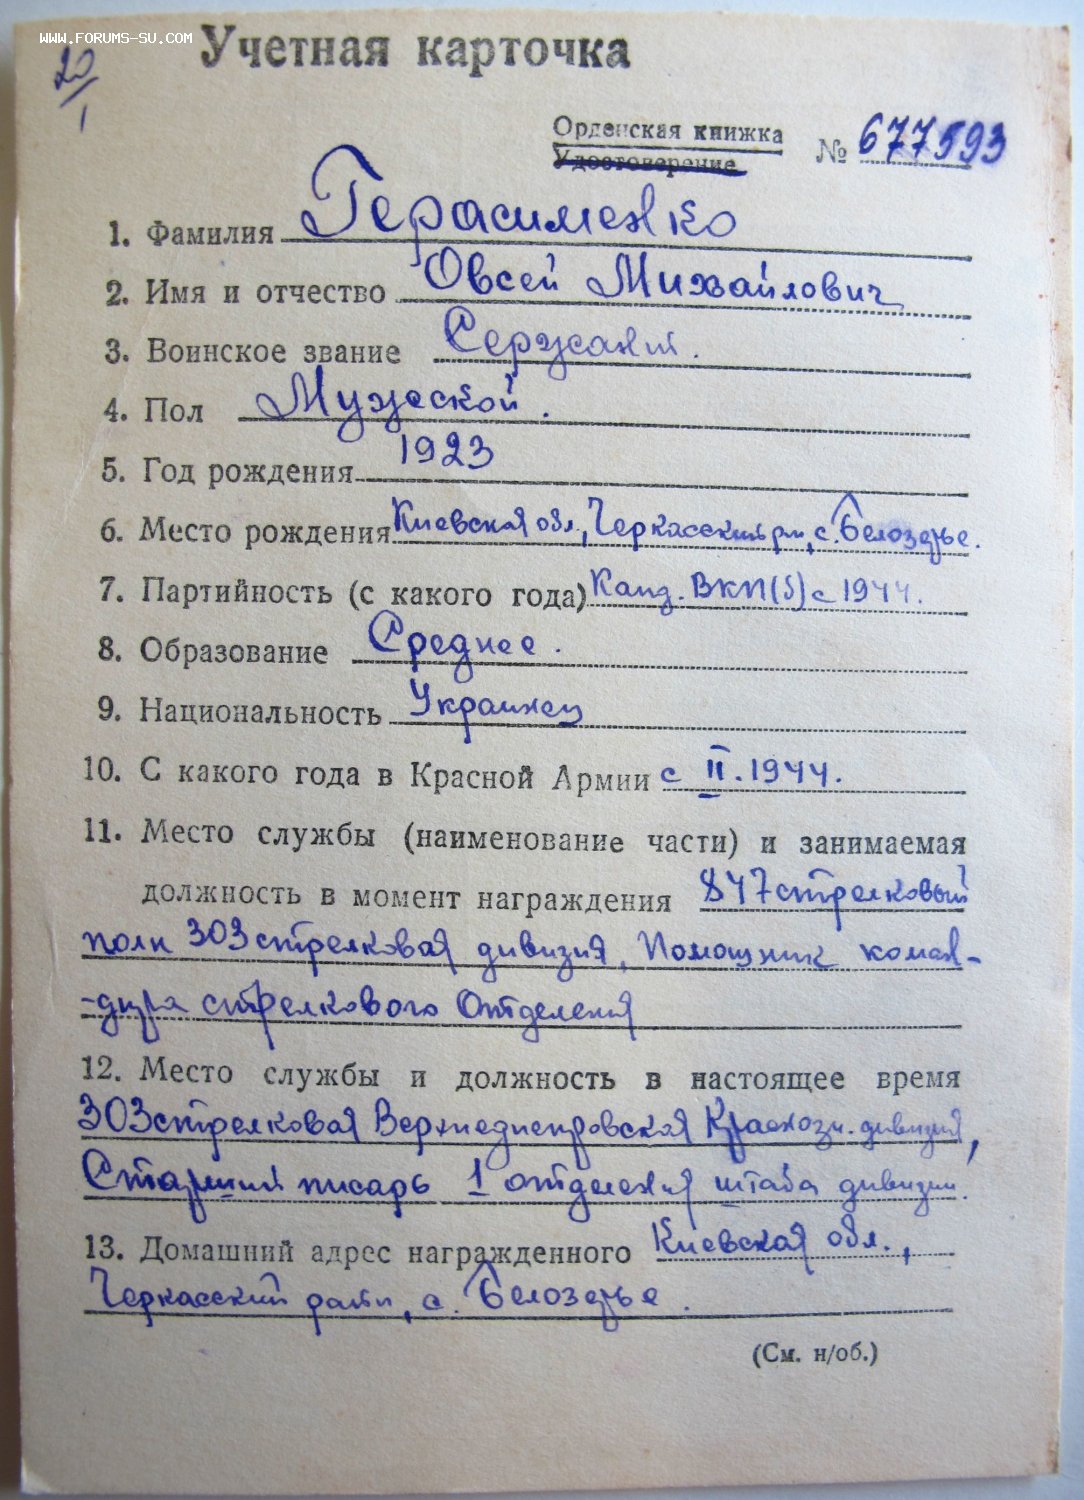 WWW.FORUMS-SU.COM
20/1
Учетная карточка
Орденская книжка
Удостоверение
№ 677593
1. Фамилия Герасименко
2. Имя и отчество Овсей Михайлович
3. Воинское звание Сержант.
4. Пол Мужской.
5. Год рождения 1923
6. Место рождения Киевская обл, Черкасский рн, с. Белозерье.
7. Партийность (с какого года) Канд. ВКП(б) с 1944.
8. Образование Среднее.
9. Национальность Украинец
10. С какого года в Красной Армии с II. 1944.
11. Место службы (наименование части) и занимаемая
должность в момент награждения 847 стрелковый
полк 303 стрелковая дивизия, Помощник коман-
-дира стрелкового Отделения
12. Место службы и должность в настоящее время
303 стрелковая Верхнеднепровская Краснозн. дивизия,
Старший писарь 1 отделения штаба дивизии.
13. Домашний адрес награжденного Киевская обл.,
Черкасский район, с. Белозерье.
(См. н/об.)